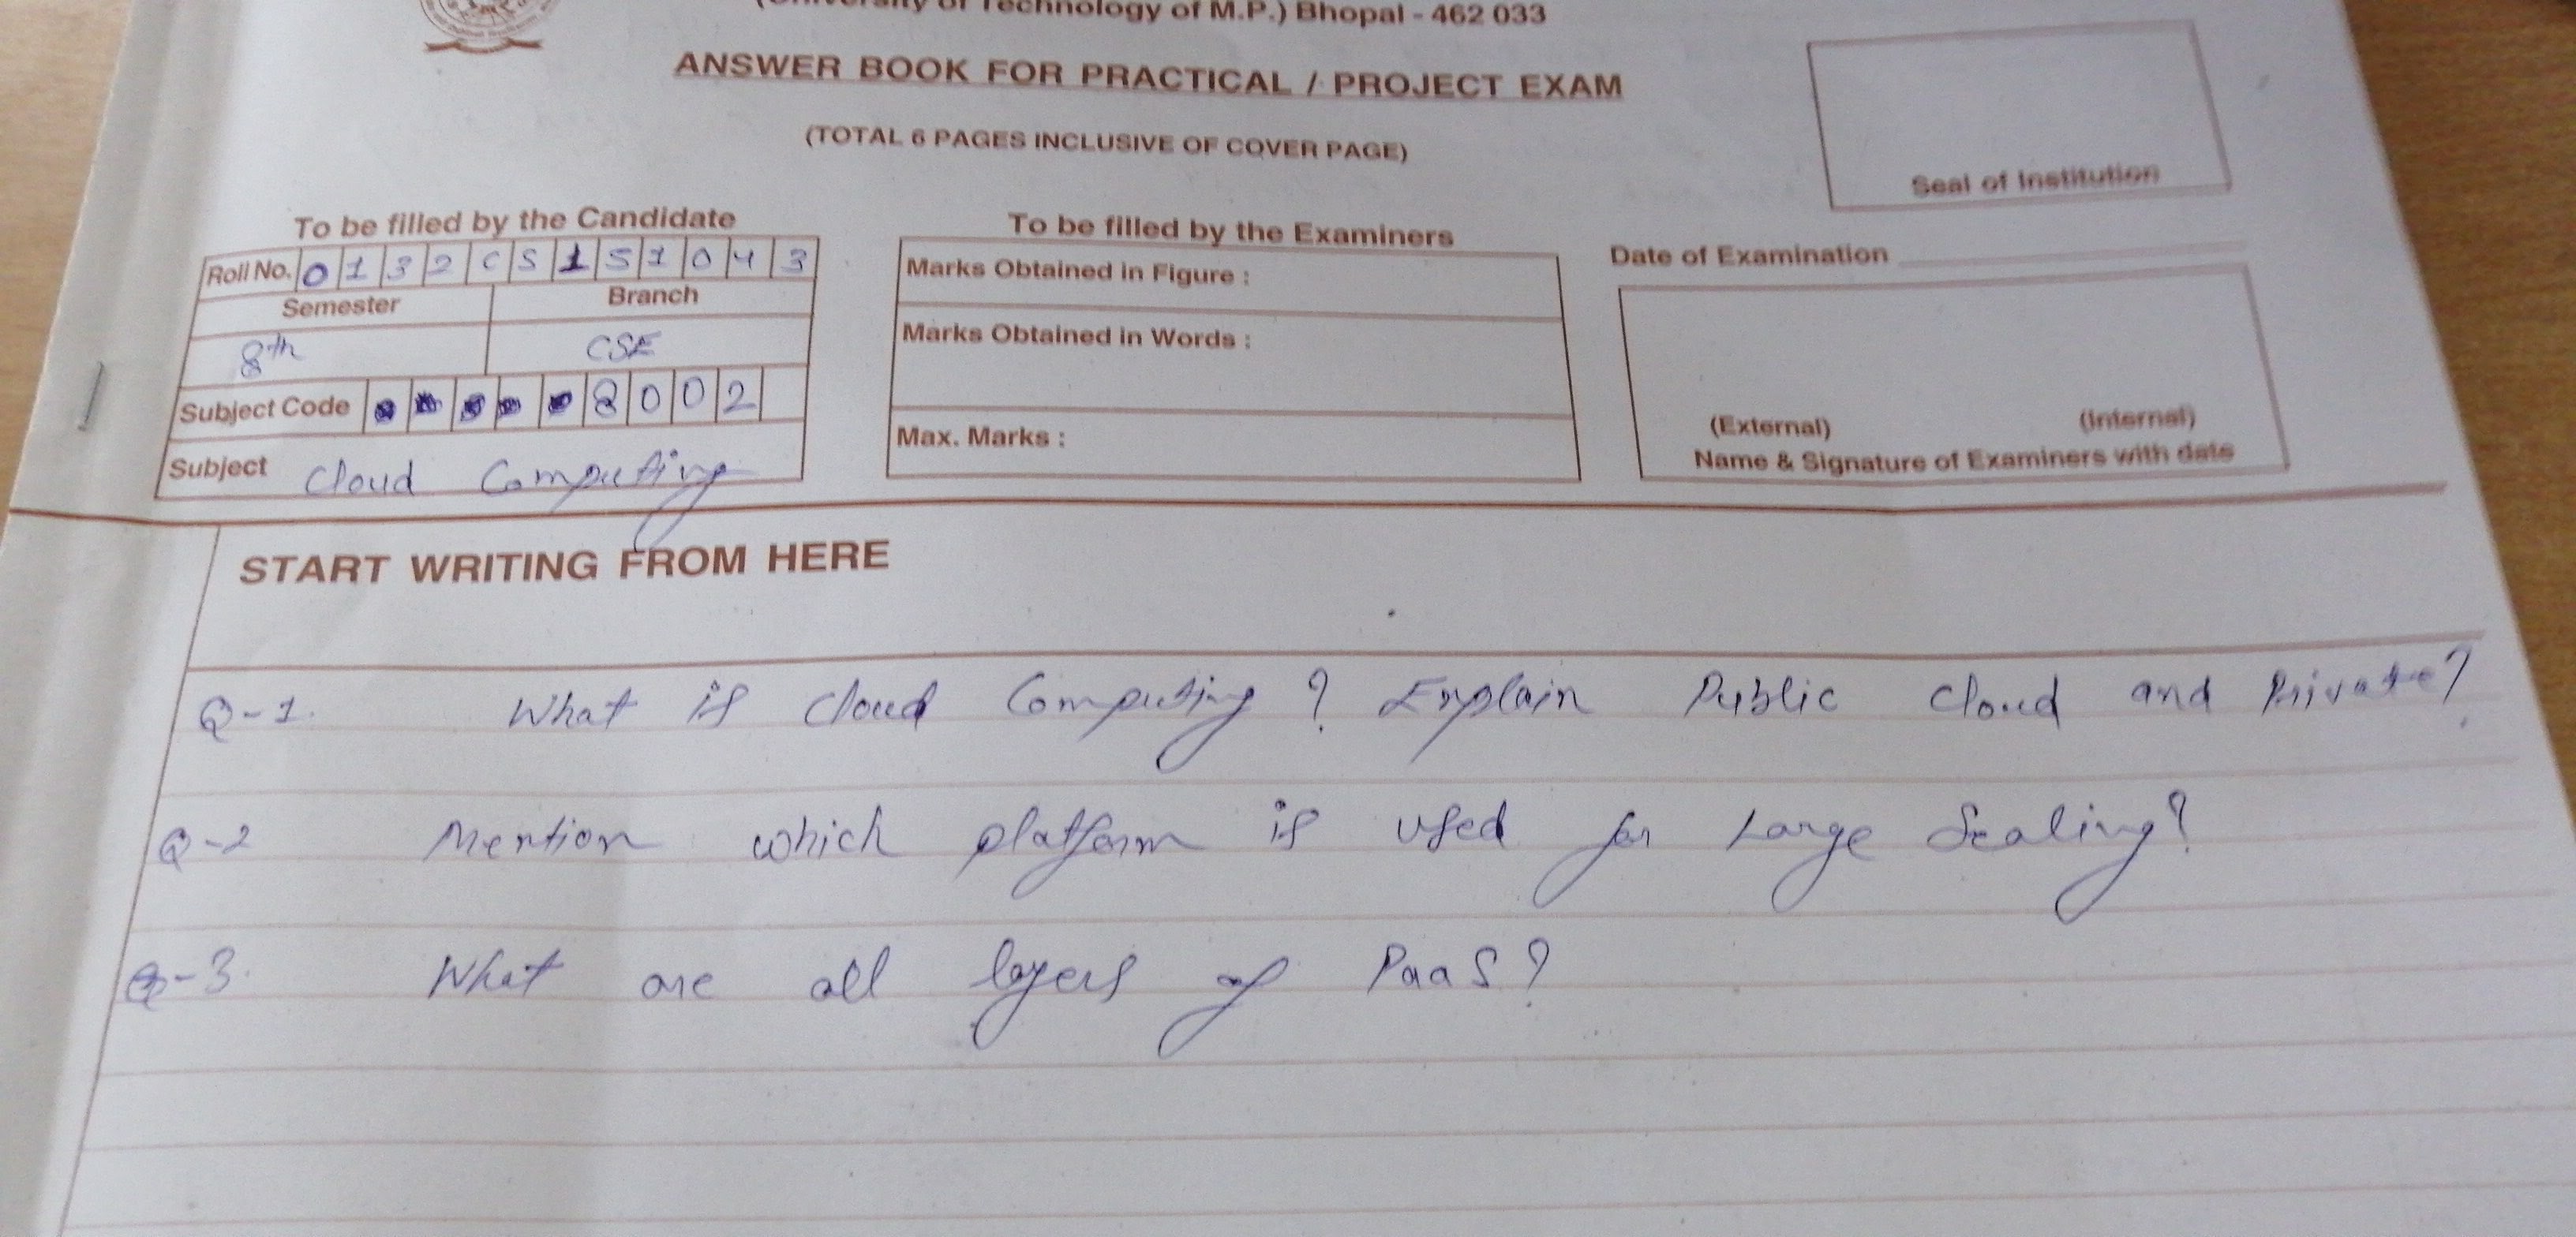 (University of Technology of M.P.) Bhopal - 462 033
ANSWER BOOK FOR PRACTICAL / PROJECT EXAM
(TOTAL 6 PAGES INCLUSIVE OF COVER PAGE)
Seal of Institution
To be filled by the Candidate
Roll No. 0132CS151043
Semester Branch
8th CSE
Subject Code 8002
Subject Cloud Computing
To be filled by the Examiners
Marks Obtained in Figure :
Marks Obtained in Words :
Max. Marks :
Date of Examination
(External) (Internal)
Name & Signature of Examiners with date
START WRITING FROM HERE
Q-1. What is Cloud Computing ? Explain Public Cloud and Private?
Q-2 Mention which platform is used for Large Scaling?
Q-3. What are all layers of PaaS?